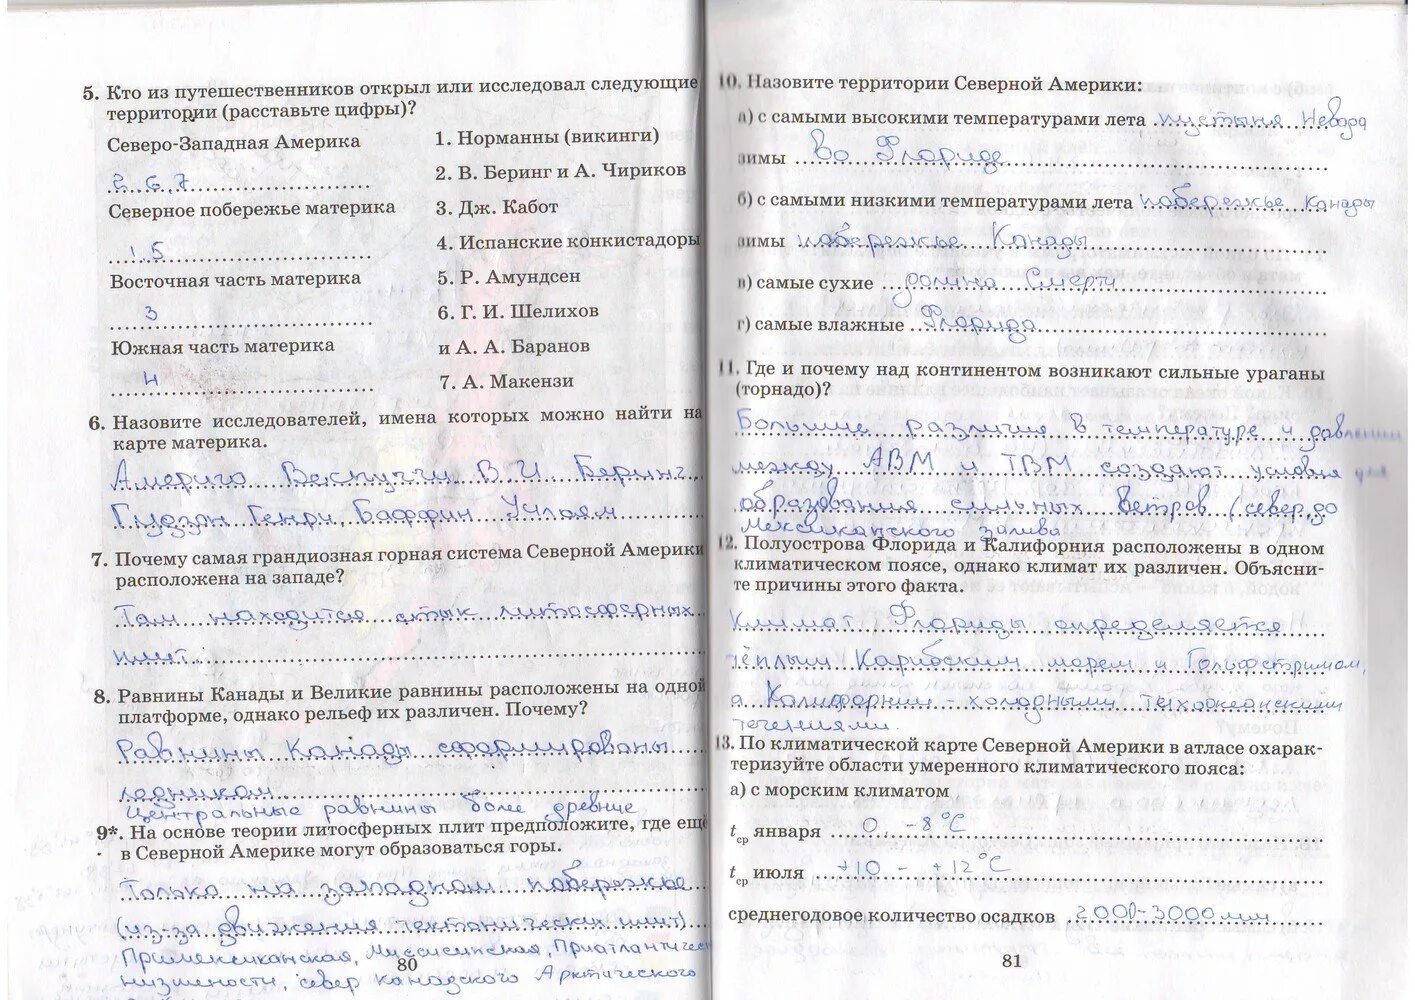 5. Кто из путешественников открыл или исследовал следующие
территории (расставьте цифры)?
Северо-Западная Америка
2, 6, 7
Северное побережье материка
1, 5
Восточная часть материка
3
Южная часть материка
4
1. Норманны (викинги)
2. В. Беринг и А. Чириков
3. Дж. Кабот
4. Испанские конкистадоры
5. Р. Амундсен
6. Г. И. Шелихов
и А. А. Баранов
7. А. Макензи
6. Назовите исследователей, имена которых можно найти на
карте материка.
Америго Веспуччи, В. И. Беринг,
Гудзон Генри, Баффин Уильям
7. Почему самая грандиозная горная система Северной Америки
расположена на западе?
Там находится стык литосферных
плит.
8. Равнины Канады и Великие равнины расположены на одной
платформе, однако рельеф их различен. Почему?
Равнины Канады сформированы
ледником
Центральные равнины более древние
9*. На основе теории литосферных плит предположите, где ещё
в Северной Америке могут образоваться горы.
Только на западном побережье
(из-за движения тектонических плит)
Примексиканская, Миссисипская, Приатлантическ
низменности, север канадского Арктического
80
10. Назовите территории Северной Америки:
а) с самыми высокими температурами лета пустыня Невада
зимы во Флориде
б) с самыми низкими температурами лета побережье Канады
зимы побережье Канады
в) самые сухие долина Смерти
г) самые влажные Флорида
11. Где и почему над континентом возникают сильные ураганы
(торнадо)?
Большие различия в температуре и давлении
между АВМ и ТВМ создают условия для
образования сильных ветров (север, до
Мексиканского залива
12. Полуострова Флорида и Калифорния расположены в одном
климатическом поясе, однако климат их различен. Объясни-
те причины этого факта.
Климат Флориды определяется
тёплым Карибским морем и Гольфстримом,
а Калифорнии - холодными тихоокеанскими
течениями.
13. По климатической карте Северной Америки в атласе охарак-
теризуйте области умеренного климатического пояса:
а) с морским климатом
tср января 0, -8°С
tср июля +10 - +12°С
среднегодовое количество осадков 2000-3000 мм
81